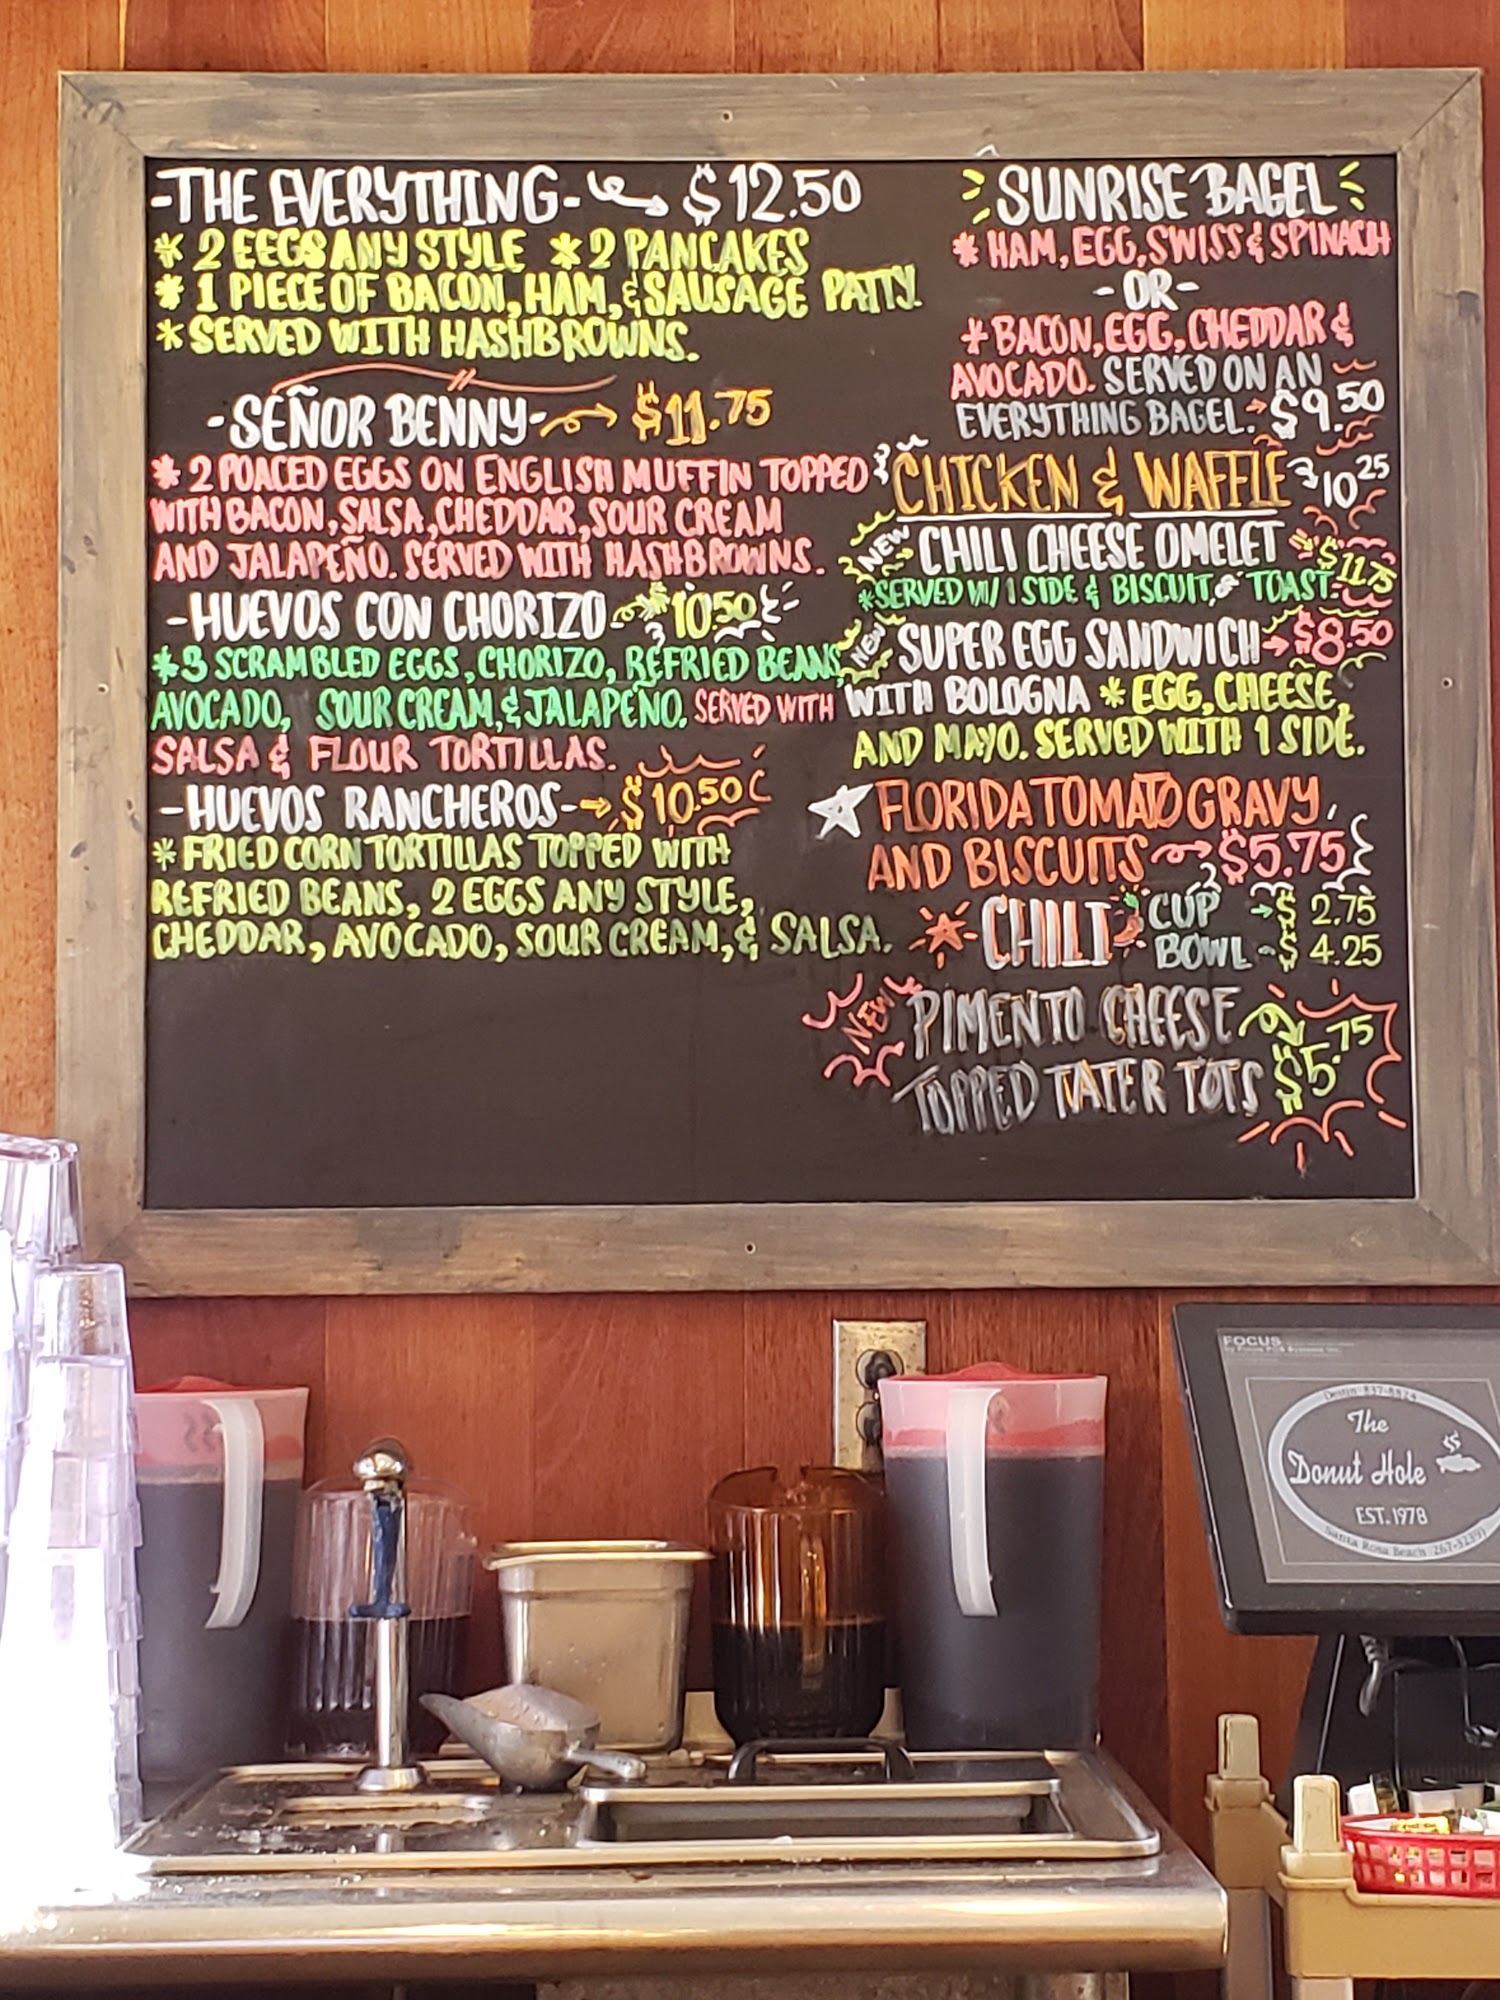 -THE EVERYTHING- $12.50
* 2 EEGGS ANY STYLE * 2 PANCAKES
* 1 PIECE OF BACON, HAM, & SAUSAGE PATTY.
* SERVED WITH HASHBROWNS.
-SEÑOR BENNY- $11.75
* 2 POACED EGGS ON ENGLISH MUFFIN TOPPED
WITH BACON, SALSA, CHEDDAR, SOUR CREAM
AND JALAPEÑO. SERVED WITH HASHBROWNS.
-HUEVOS CON CHORIZO- $10.50
* 3 SCRAMBLED EGGS, CHORIZO, REFRIED BEANS,
AVOCADO, SOUR CREAM, & JALAPEÑO. SERVED WITH
SALSA & FLOUR TORTILLAS.
-HUEVOS RANCHEROS- $10.50
* FRIED CORN TORTILLAS TOPPED WITH
REFRIED BEANS, 2 EGGS ANY STYLE,
CHEDDAR, AVOCADO, SOUR CREAM, & SALSA.
SUNRISE BAGEL
* HAM, EGG, SWISS & SPINACH
-OR-
* BACON, EGG, CHEDDAR &
AVOCADO. SERVED ON AN
EVERYTHING BAGEL. $9.50
CHICKEN & WAFFLE 10.25
NEW CHILI CHEESE OMELET $11.75
*SERVED W/ 1 SIDE & BISCUIT, or TOAST.
NEW SUPER EGG SANDWICH $8.50
WITH BOLOGNA * EGG, CHEESE,
AND MAYO. SERVED WITH 1 SIDE.
FLORIDA TOMATO GRAVY
AND BISCUITS $5.75
CHILI CUP $ 2.75
BOWL $ 4.25
NEW PIMENTO CHEESE
TOPPED TATER TOTS $5.75
FOCUS
by Focus POS Systems Inc.
Destin 837-8824
The
Donut Hole
EST. 1978
Santa Rosa Beach 267-3239